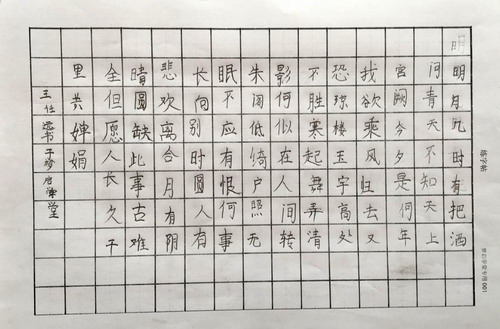 明
明月几时有把酒
问青天不知天上
宫阙今夕是何年
我欲乘风归去又
恐琼楼玉宇高处
不胜寒起舞弄清
影何似在人间转
朱阁低绮户照无
眠不应有恨何事
长向别时圆人有
悲欢离合月有阴
晴圆缺此事古难
全但愿人长久千
里共婵娟
练字帖
001